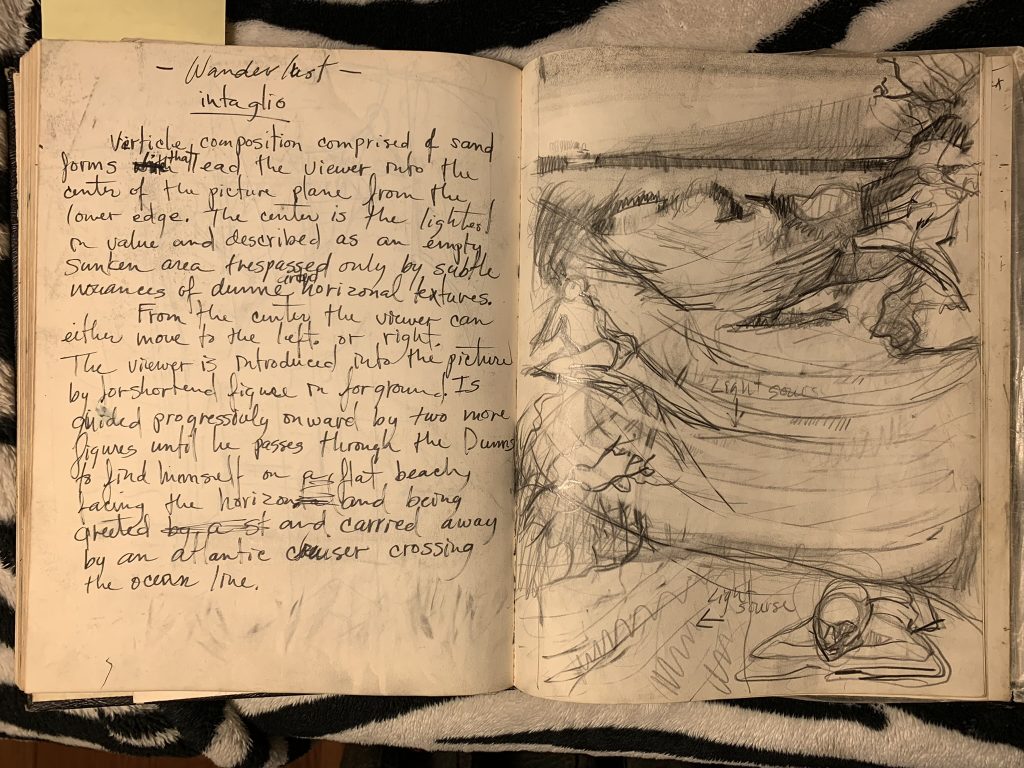 - Wanderlust -
intaglio
Virticle composition comprised of sand
forms that lead the viewer into the
center of the picture plane from the
lower edge. The center is the lightest
in value and described as an empty
sunken area trespassed only by subtle
nouances of dunne horizonal textures.
From the center the viewer can
either move to the left or right.
The viewer is introduced into the picture
by forshortend figure in forground. Is
guided progressivly onward by two more
figures until he passes through the Dunns
to find himself on a flat beach,
facing the horizon and being
greeted by a st and carried away
by an atlantic cruiser crossing
the ocean line.
Light sourse
Light
sourse